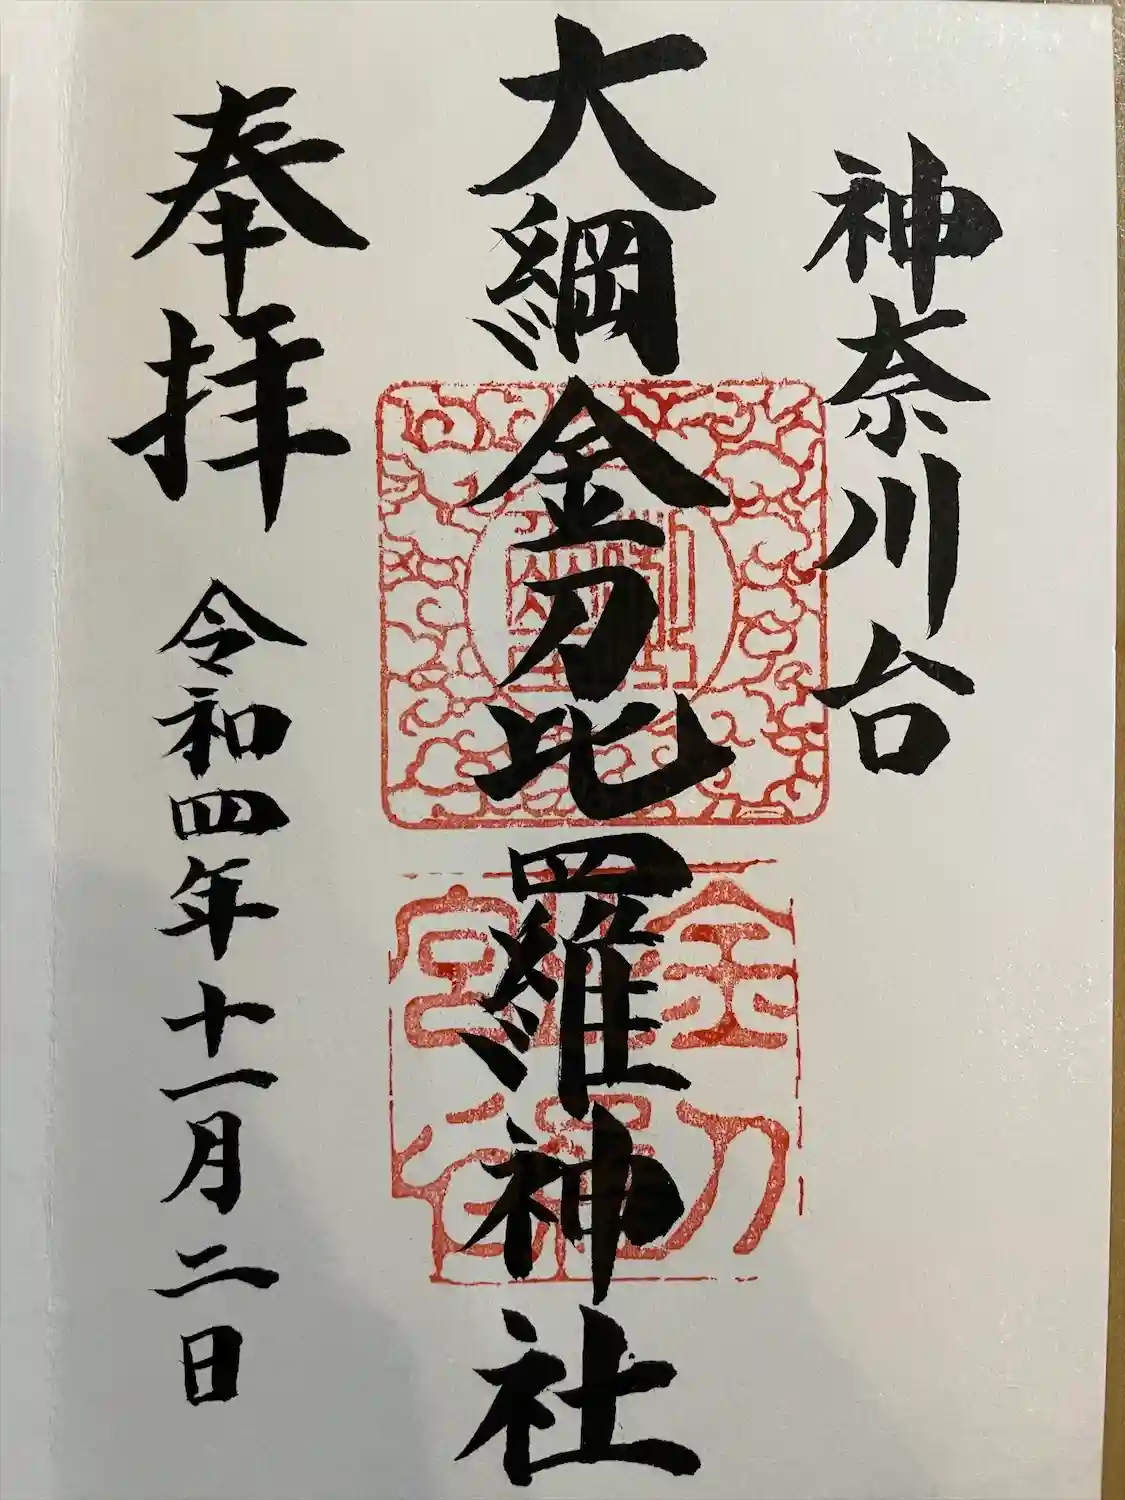 神奈川台
大綱金刀比羅神社
奉拝
令和四年十一月二日